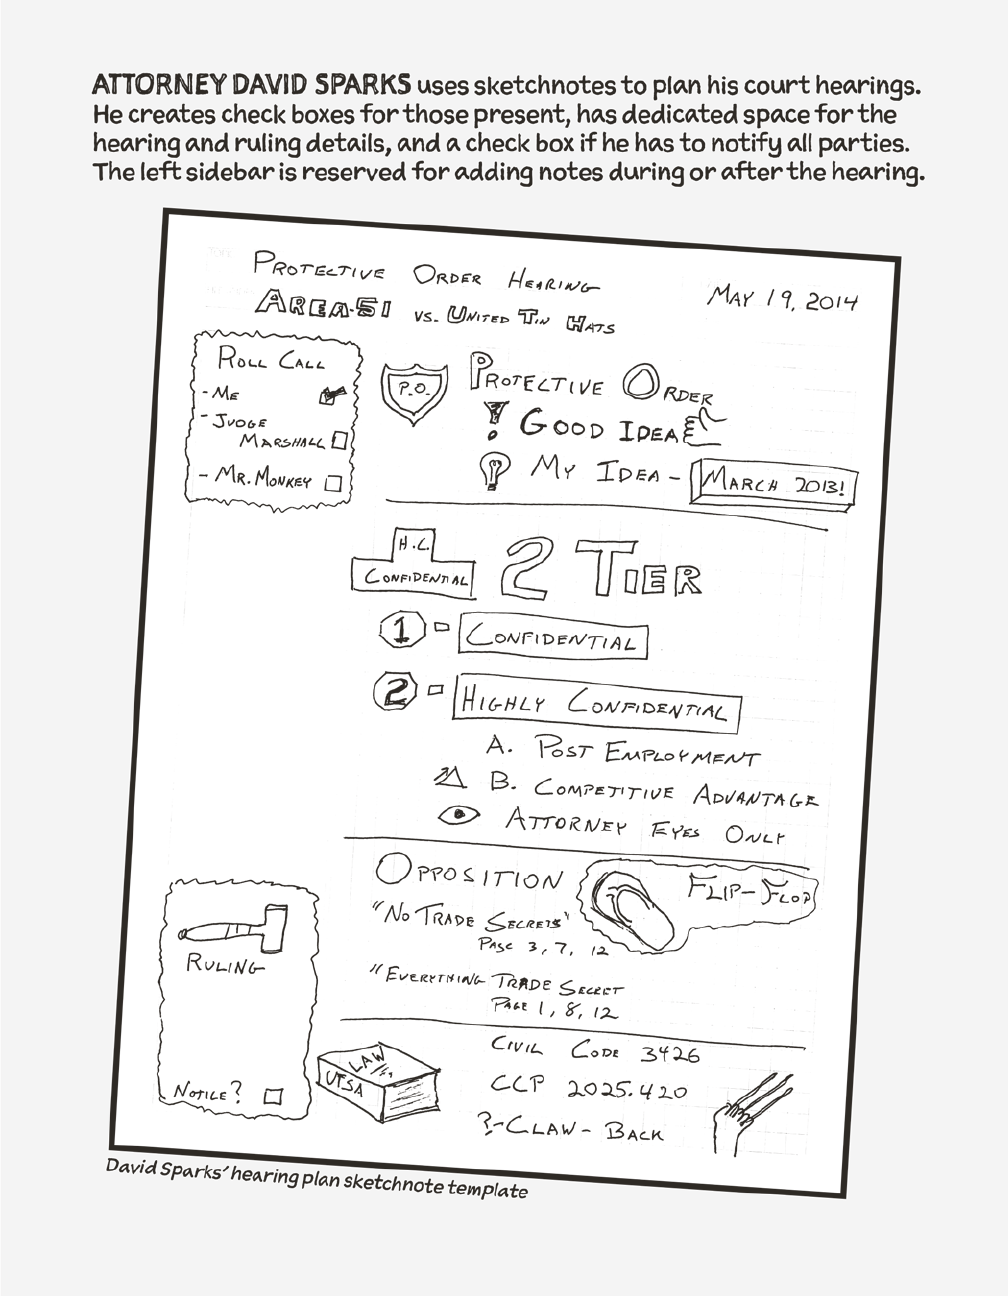 ATTORNEY DAVID SPARKS uses sketchnotes to plan his court hearings.
He creates check boxes for those present, has dedicated space for the
hearing and ruling details, and a check box if he has to notify all parties.
The left sidebar is reserved for adding notes during or after the hearing.
PROTECTIVE ORDER HEARING
MAY 19, 2014
AREA-51 VS. UNITED TIN HATS
ROLL CALL
- ME
- JUDGE
MARSHALL
- MR. MONKEY
P.O.
PROTECTIVE ORDER
! GOOD IDEA
MY IDEA - MARCH 2013!
H.C.
CONFIDENTIAL
2 TIER
1 = CONFIDENTIAL
2 = HIGHLY CONFIDENTIAL
A. POST EMPLOYMENT
B. COMPETITIVE ADVANTAGE
ATTORNEY EYES ONLY
OPPOSITION
FLIP-FLOP
"NO TRADE SECRETS"
PAGE 3, 7, 12
"EVERYTHING TRADE SECRET
PAGE 1, 8, 12
RULING
NOTICE?
LAW
UTSA
CIVIL CODE 3426
CCP 2025.420
?-CLAW-BACK
David Sparks' hearing plan sketchnote template